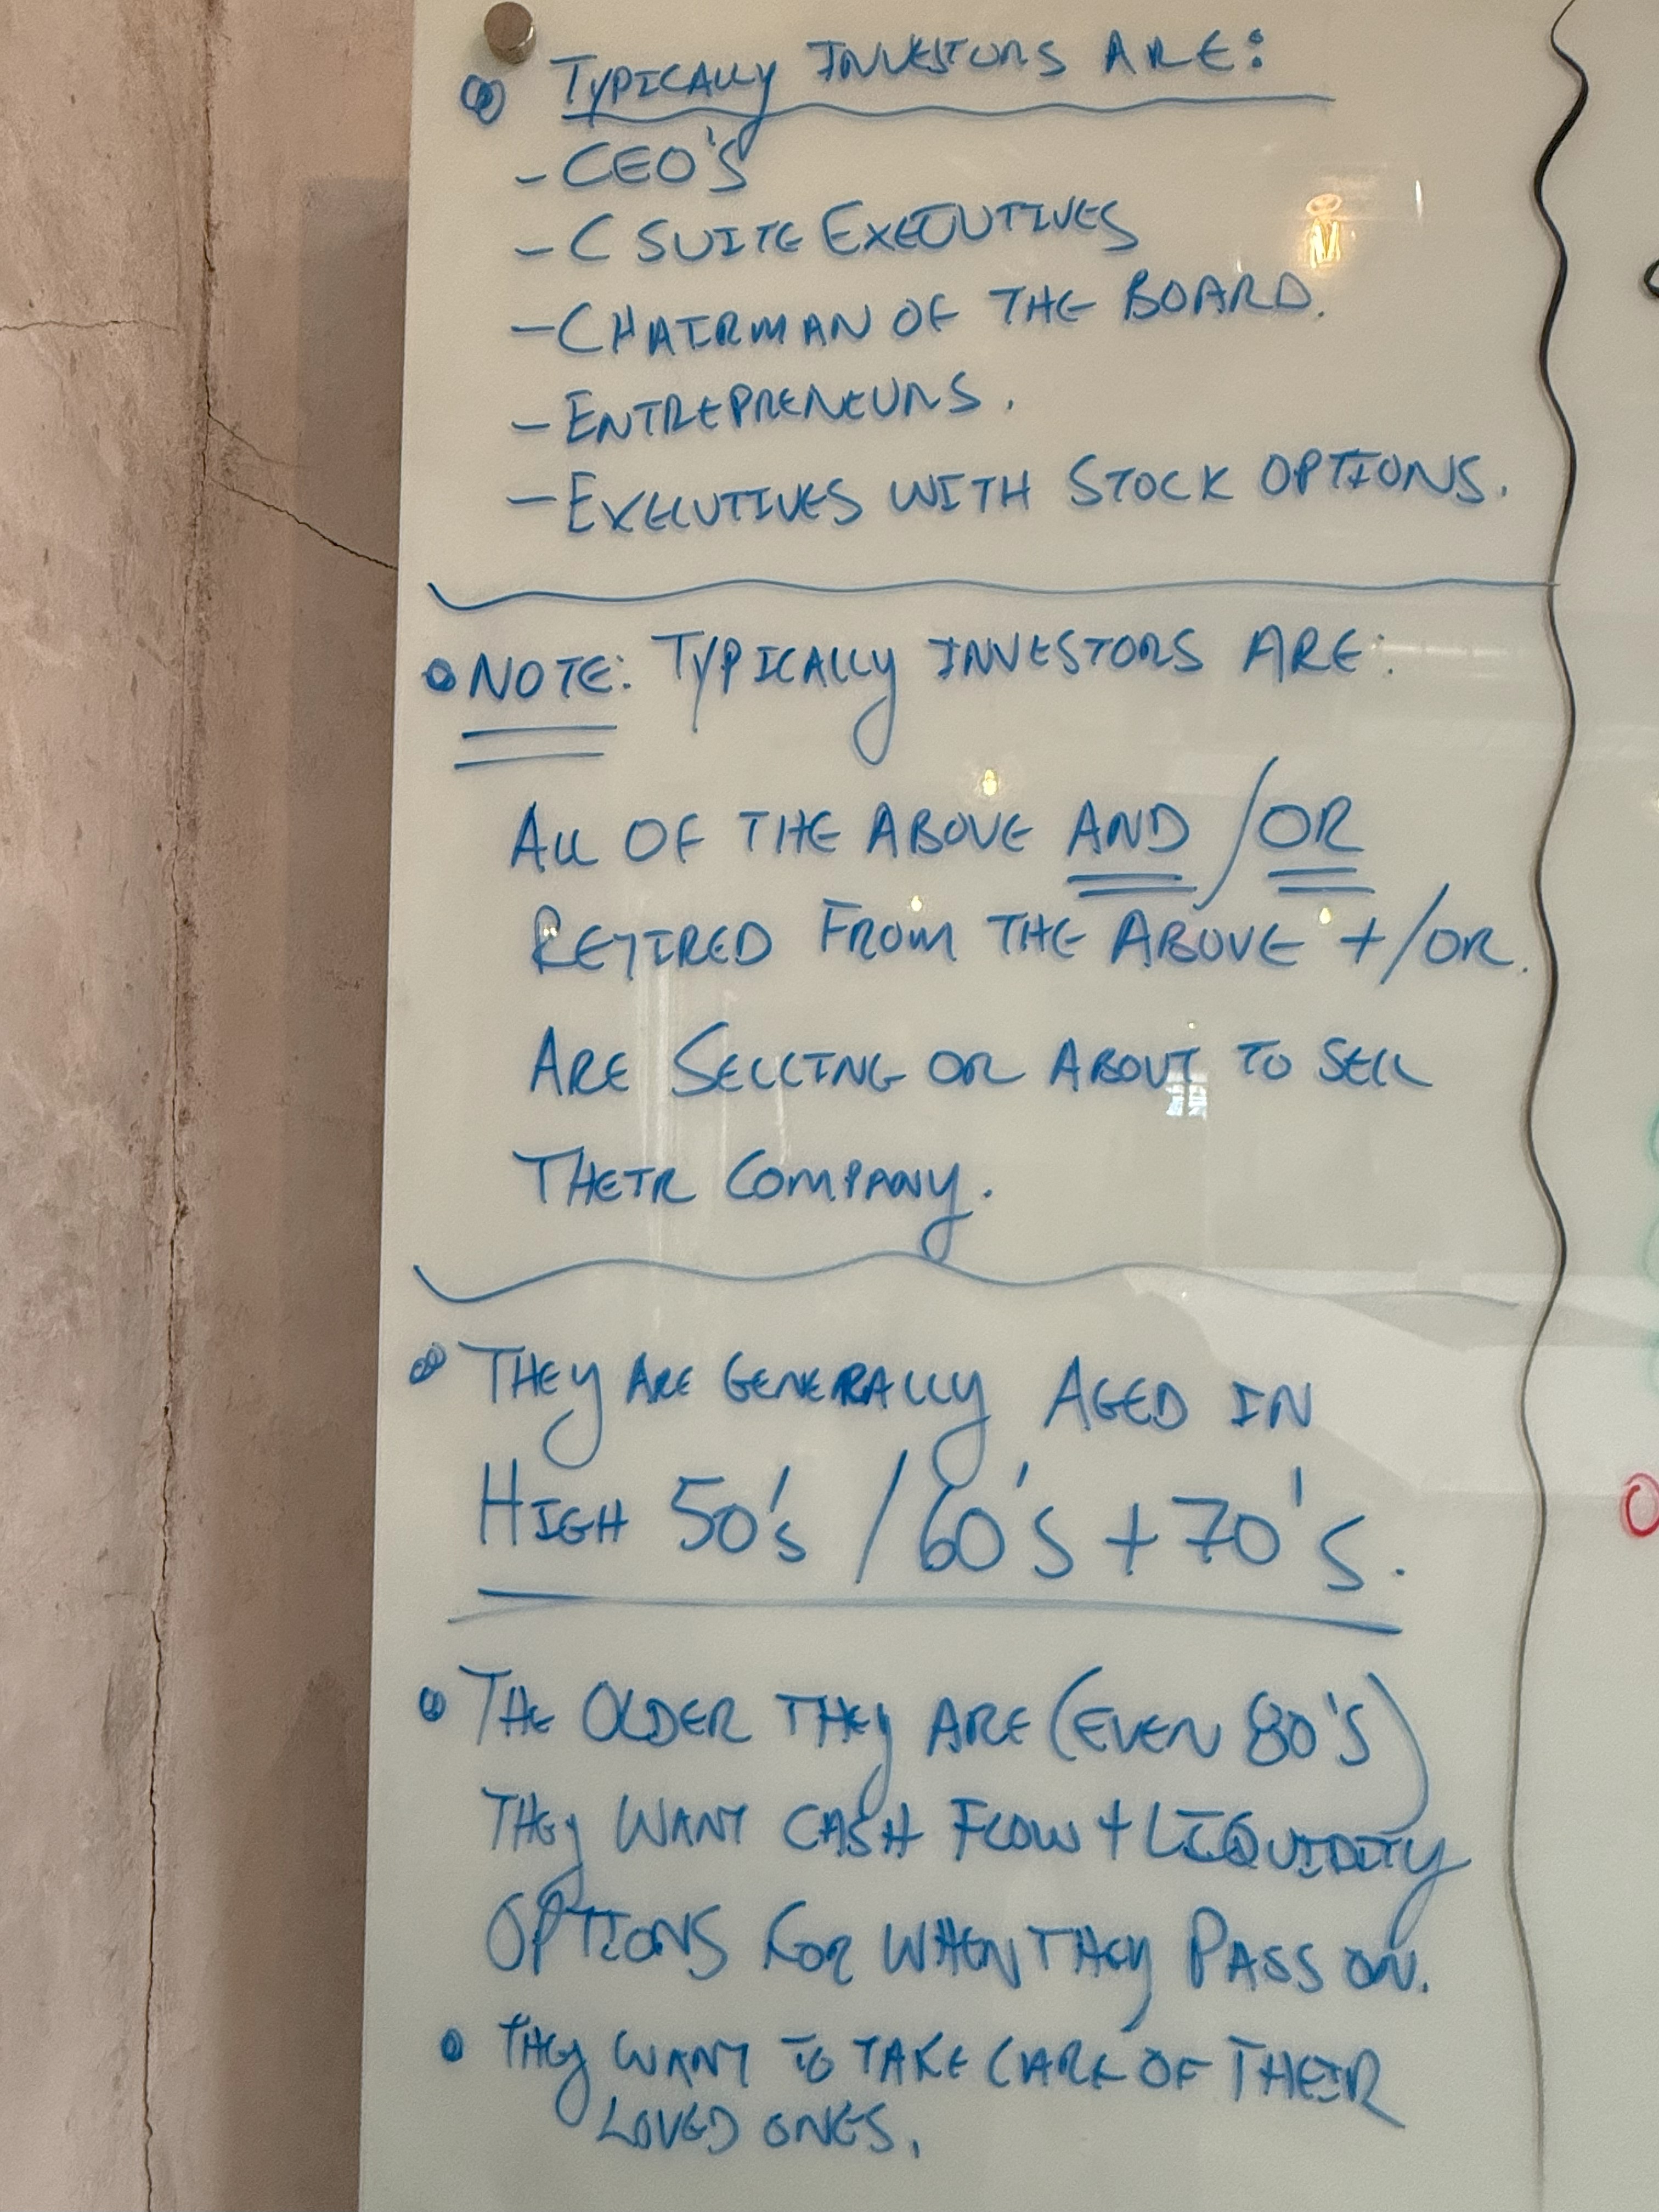 • TYPICALLY INVESTORS ARE:
- CEO'S
- C SUITE EXECUTIVES
- CHAIRMAN OF THE BOARD.
- ENTREPRENEURS.
- EXECUTIVES WITH STOCK OPTIONS.
• NOTE: TYPICALLY INVESTORS ARE:
ALL OF THE ABOVE AND / OR
RETIRED FROM THE ABOVE +/OR.
ARE SELLING OR ABOUT TO SELL
THEIR COMPANY.
• THEY ARE GENERALLY AGED IN
HIGH 50's / 60's + 70's.
• THE OLDER THEY ARE (EVEN 80'S)
THEY WANT CASH FLOW + LIQUIDITY
OPTIONS FOR WHEN THEY PASS ON.
• THEY WANT TO TAKE CARE OF THEIR
LOVED ONES.